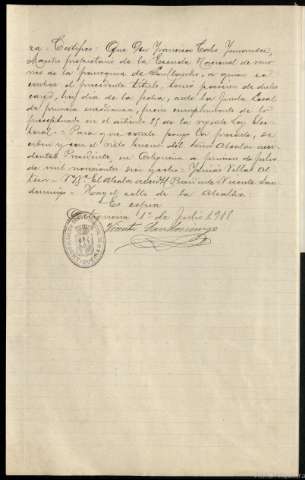 za Certifico: Que Don Francisco Cobo Fernandez,
Maestro propietario de la Escuela Nacional de ni-
nos de la parroquia de a quien se
contrae el precedente titulo, tomó posesion de dicho
cargo, hoy dia de la fecha, ante la Junta Local
de primera enseñanza, previo cumplimiento de lo
preceptuado en el articulo 25 de la vigente Ley Elec-
toral. - Para que conste pongo la presente, se-
llada y con el visto bueno del Señor Alcalde acci-
dental Presidente, en Cortegana a primero de julio
de mil novecientos diez y ocho. - Villar
- Vº Bº El Alcalde accidtl Presidente Vicente San-
domingo - Hay el sello de la Alcaldia.
Es copia
1º de julio 1918
Vicente Sandomingo